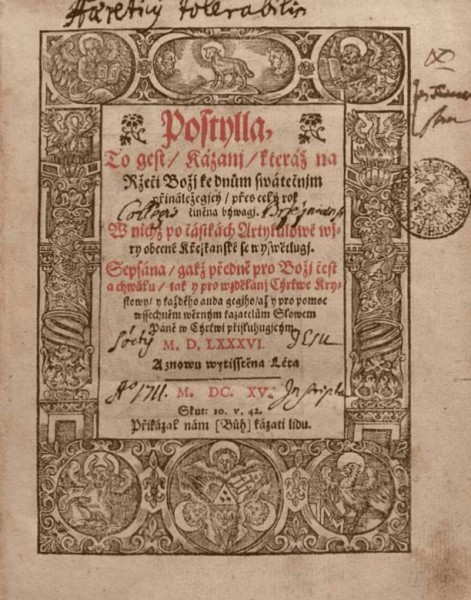 Haeretici tolerabilis
Postylla,
To gest / Kázanj / kteráž na
Ržeči Božj ke dnům swátečnjm
přináležegjcý / přes celý rok
činěna býwagj.
W nichž po částkách Artykulowé wj-
ry obecné Křesťanské se wyswětlugj.
Sepsána / gakž předně pro Božj čest
a chwálu / tak y pro wzdělánj Cýrkwe Kry-
stowy / y každého auda gegjho / až y pro pomoc
wssechněm wěrným kazatelům Slowem
Páně w Cýrkwi přisluhugjcým.
M. D. LXXXVI.
A znowu wytisstěna Léta
Aº 1711. M. DC. XV. Inscript
Skut: 10. v. 42.
Přikázal nám [Bůh] kázati lidu.